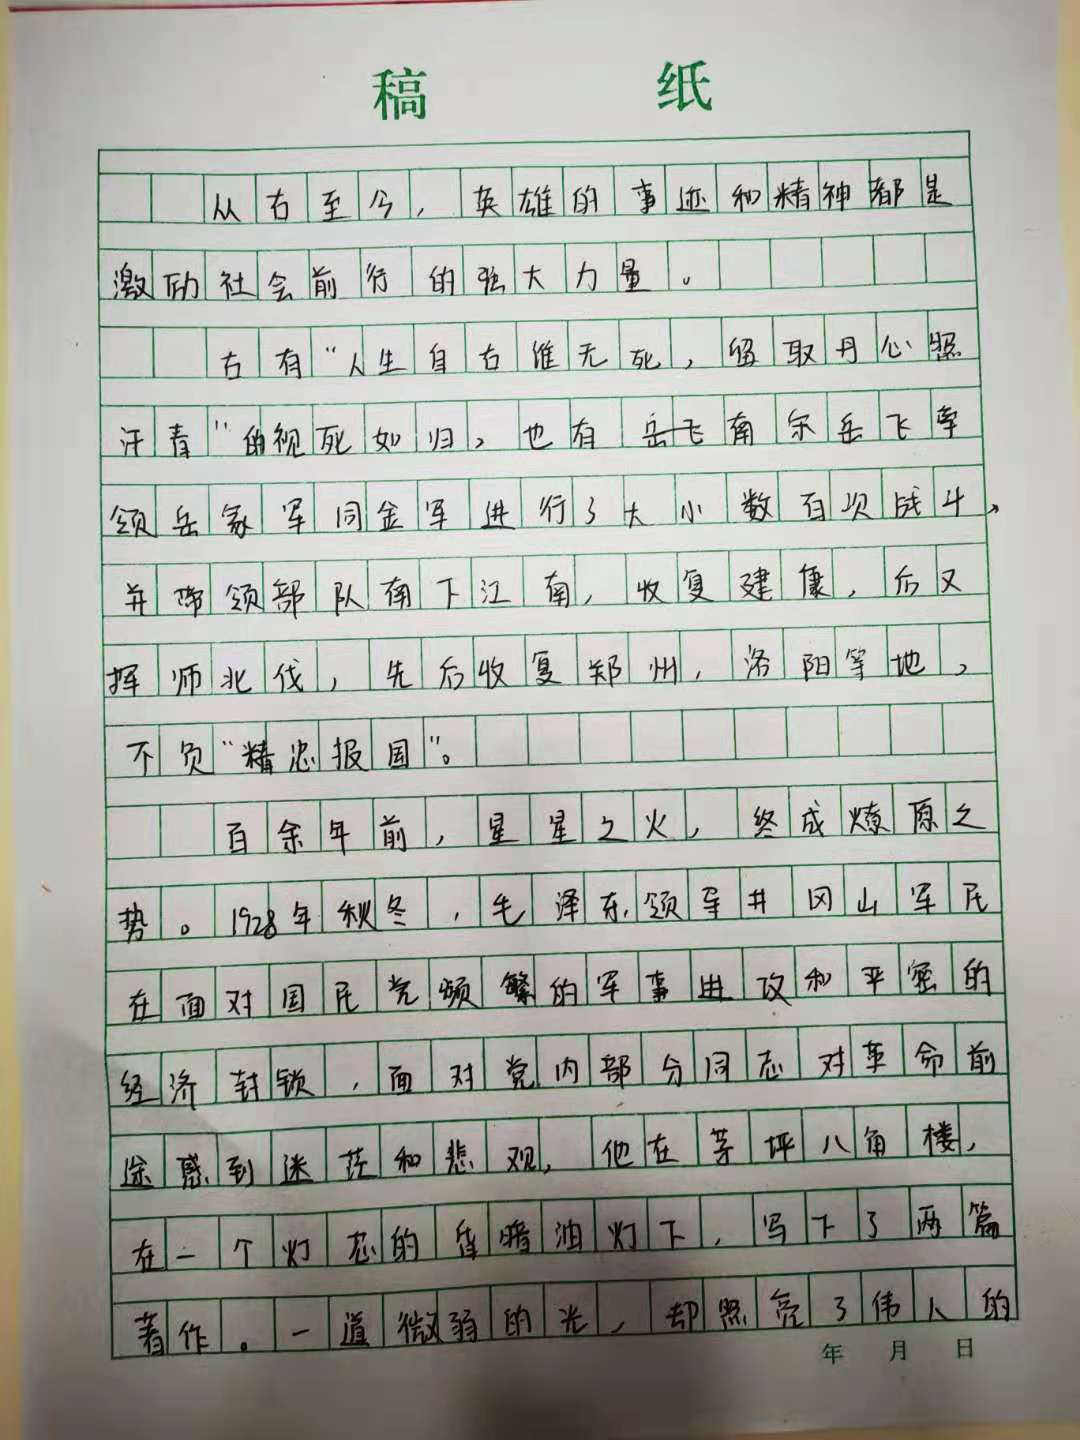 稿 纸
从古至今，英雄的事迹和精神都是
激励社会前行的强大力量。
古有“人生自古谁无死，留取丹心照
汗青”的视死如归，也有岳飞南宋岳飞率
领岳家军同金军进行了大小数百次战斗，
并带领部队南下江南，收复建康，后又
挥师北伐，先后收复郑州，洛阳等地，
不负“精忠报国”。
百余年前，星星之火，终成燎原之
势。1928年秋冬，毛泽东领导井冈山军民
在面对国民党频繁的军事进攻和严密的
经济封锁，面对党内部分同志对革命前
途感到迷茫和悲观，他在茅坪八角楼，
在一个灯芯的昏暗油灯下，写下了两篇
著作。一道微弱的光，却照亮了伟人的
年 月 日